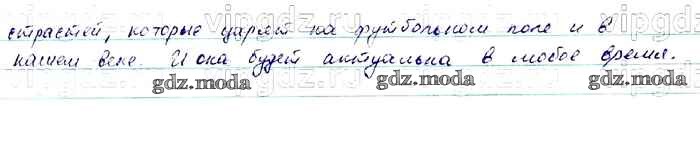 страстей, которые царят на футбольном поле и в
нашем веке. И она будет актуальна в любое время.
gdz.moda gdz.moda gdz.moda